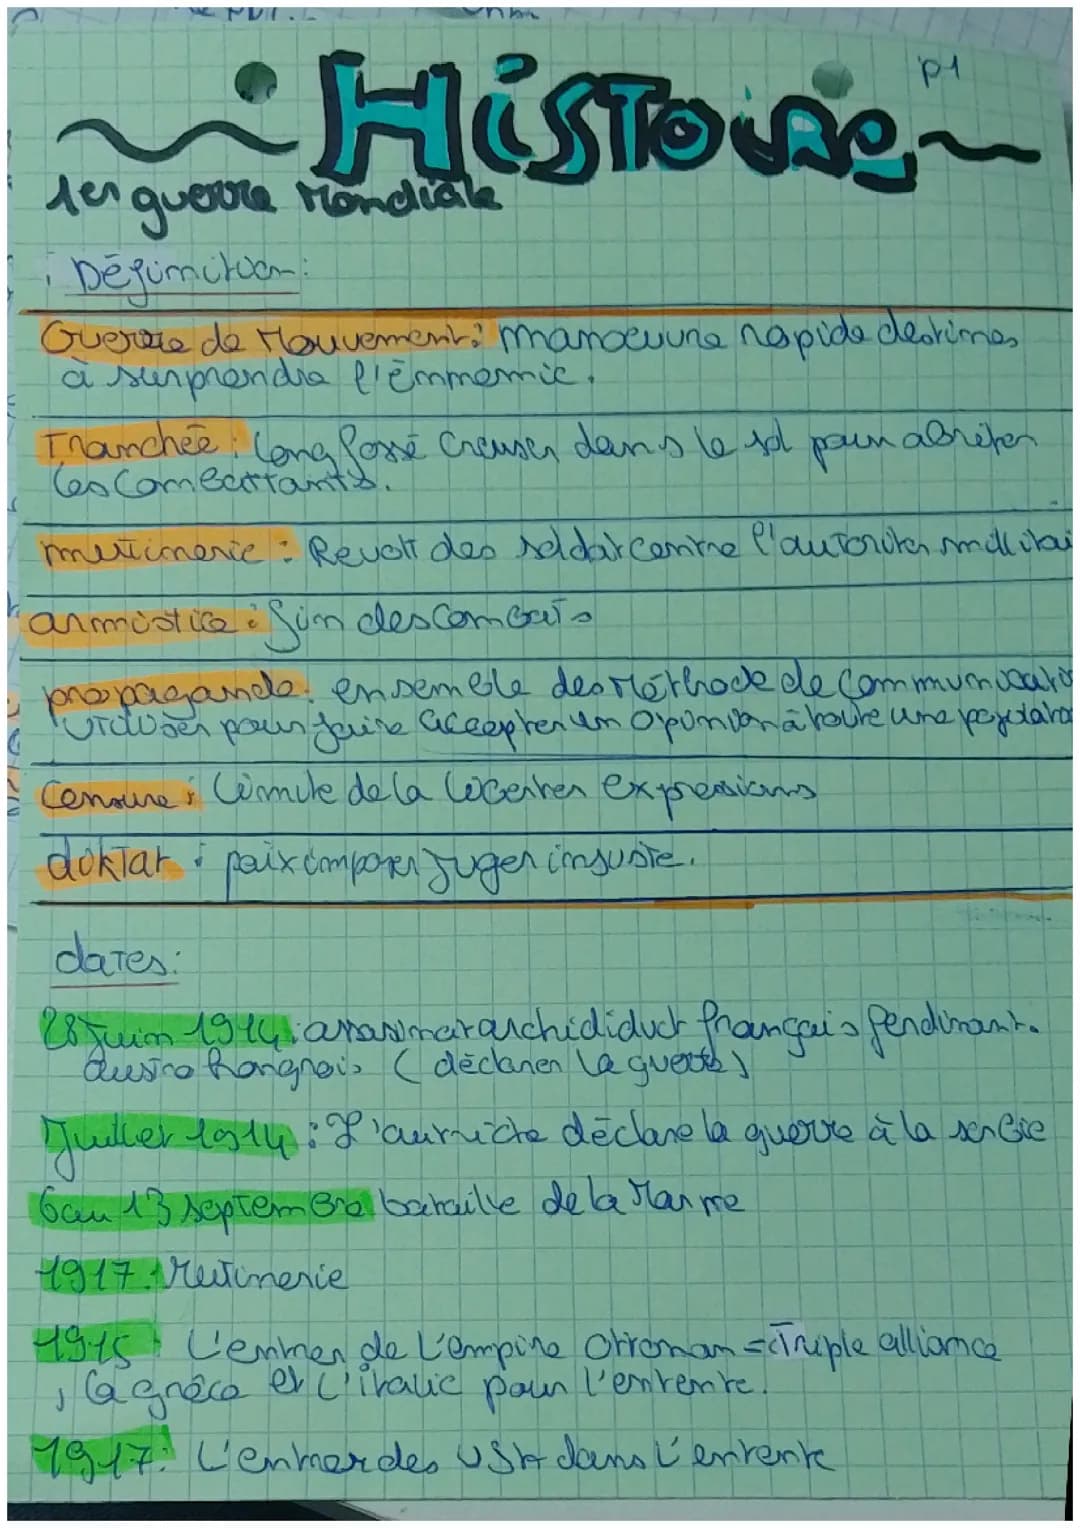 p1
Histoire
1er guerre Mondiale
Définition:
Guerre de Mouvement: manoeuvre rapide destines
à surprendre l'Ennemie.
Tranchée: Long fossé Creuser dans le sol pour abriter
les Combattants.
mutinerie: Revolt des soldat contre l'autoriter millitai
armistice: fin des Combats
propagande: ensemble des Méthode de Communicatio
Utiliser pour faire accepter un Opinion à toute une
Censure: Limite de la liberter expressions
diktat: paix imposer juger injuste.
dates:
28 Juin 1914: assassinat archididuct français ferdinant.
austro hongrois (déclarer la guerre)
Juillet 1914: L'autriche déclare la guerre à la serbie
6 au 13 septembre bataille de la Marne
1917: Mutinerie
1915 L'entrer de l'empire Ottoman = Triple alliance
, la grèce et l'italie pour l'entente.
1917: L'entrer des USA dans l'entente